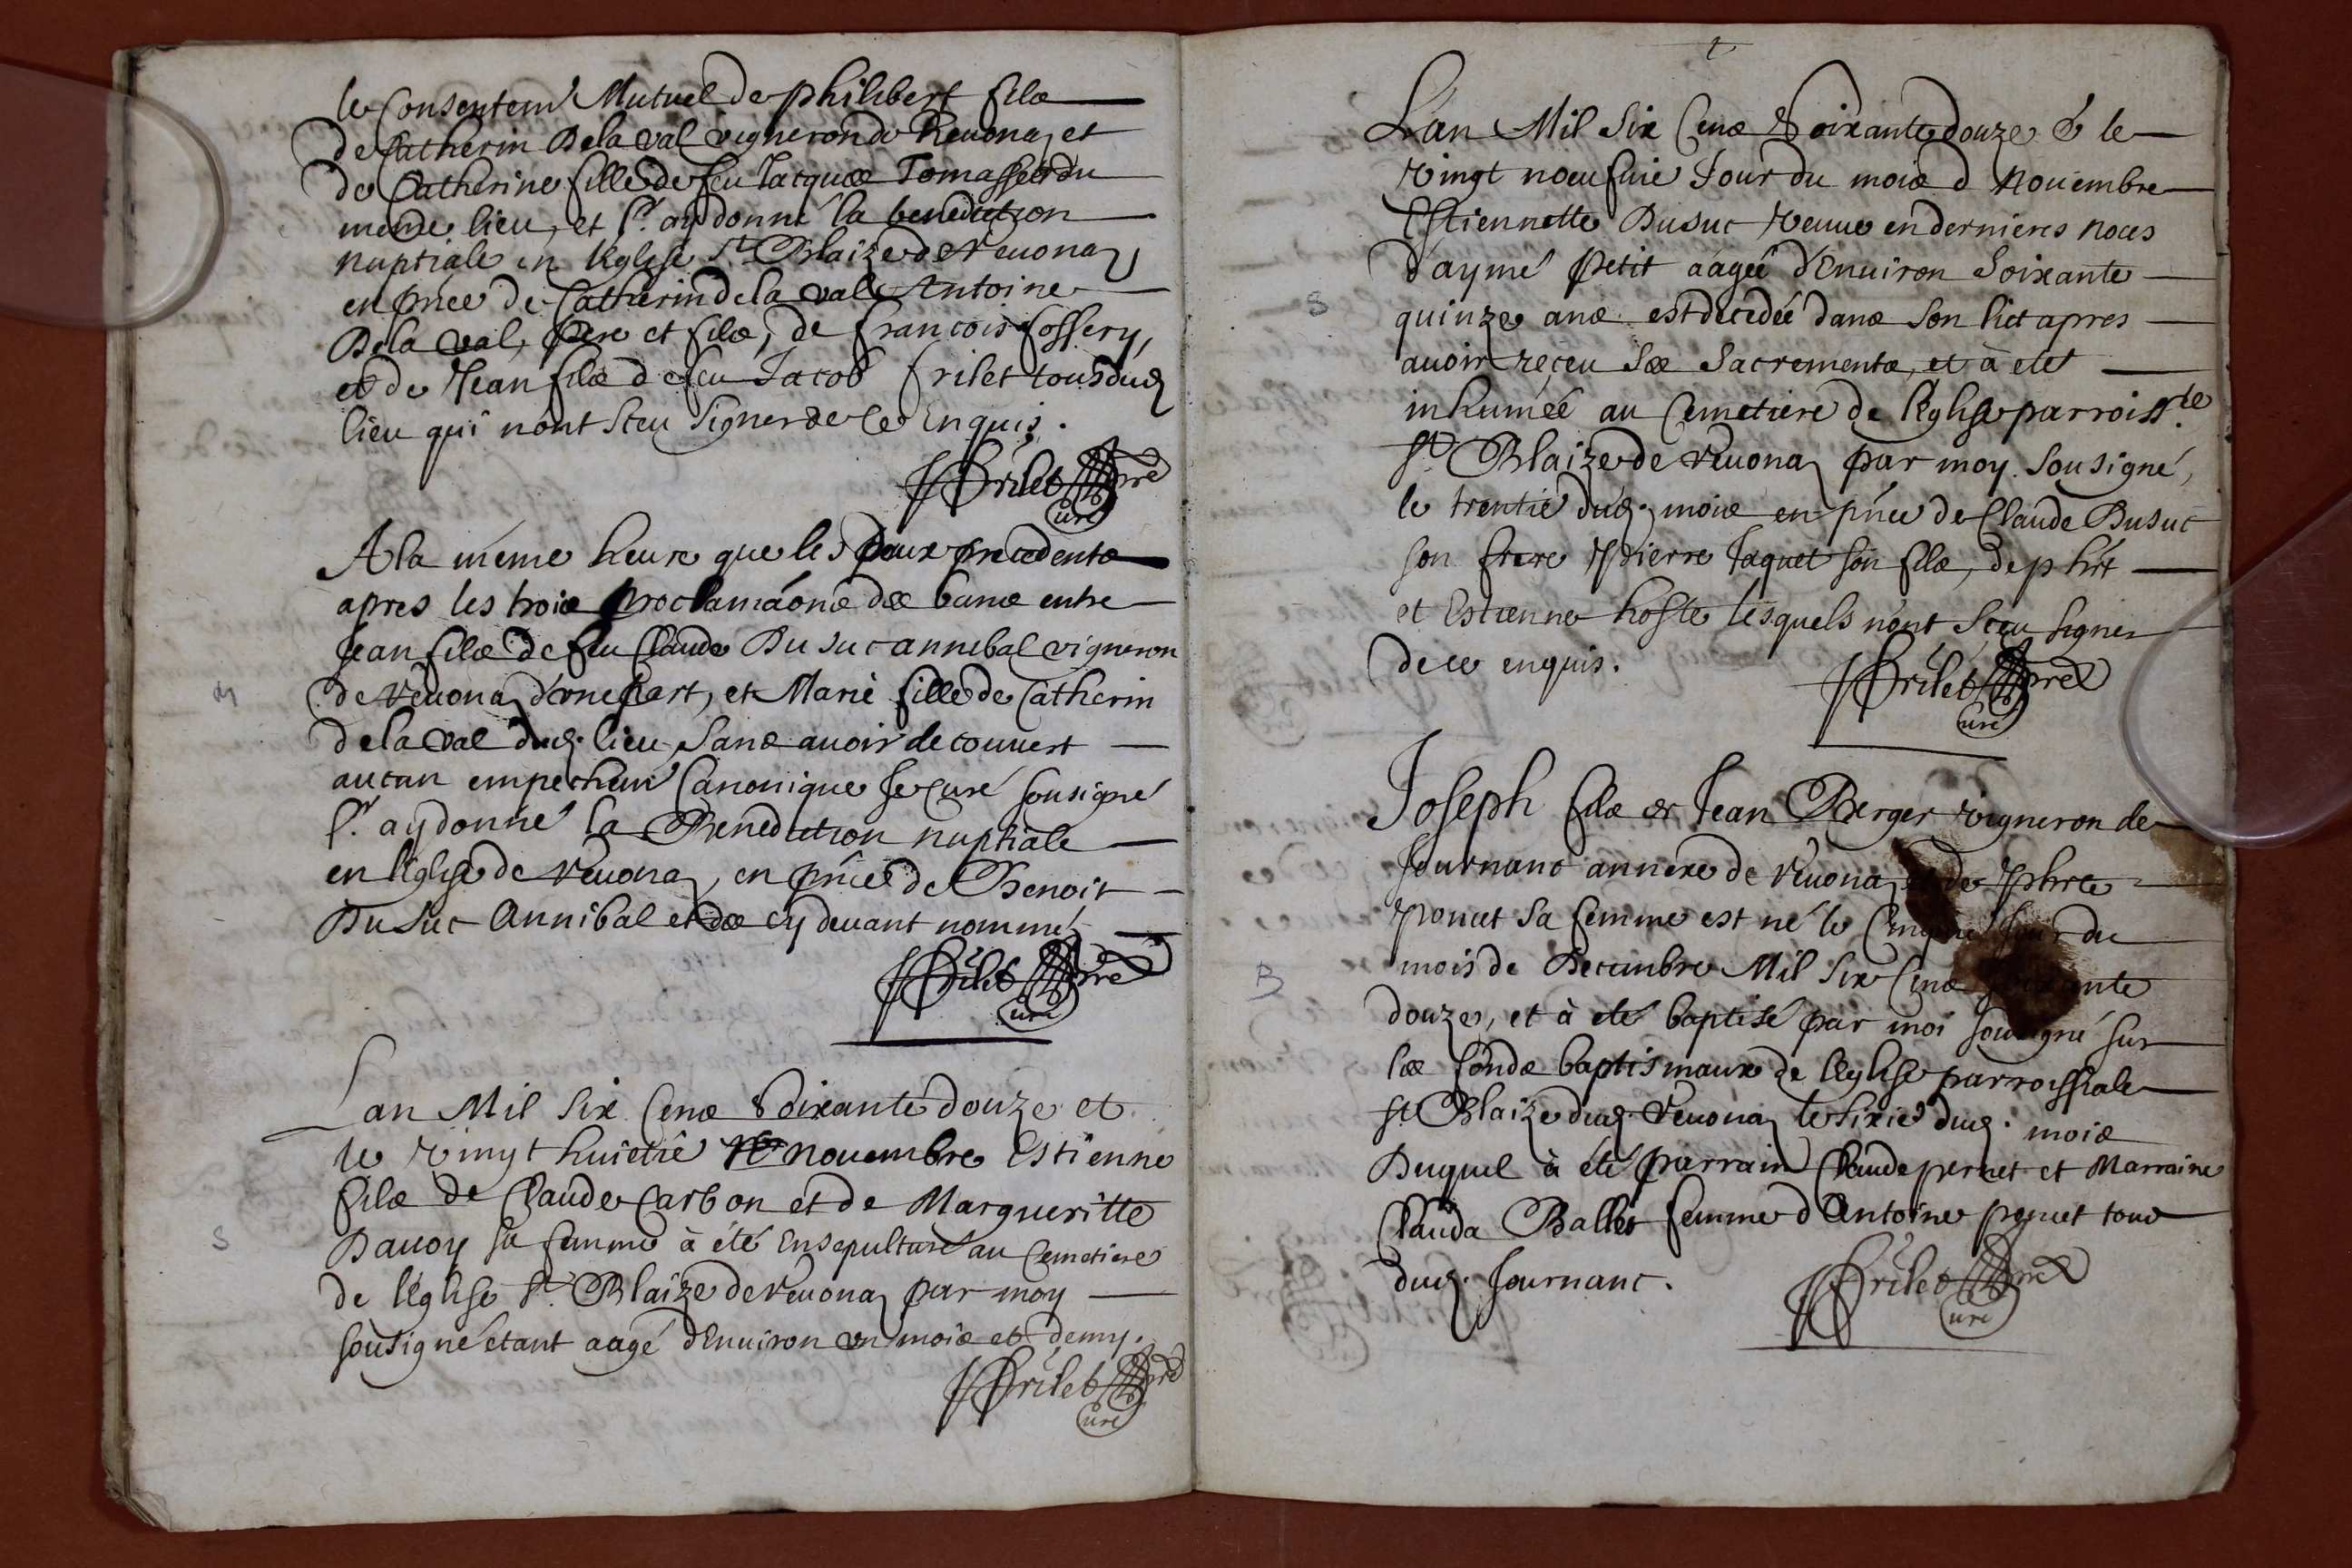 le Consentemt Mutuel de philibert fils
de Catherin De la val vigneron de Reuonaz et
de Catherine fille de feu Jacques Tomasset du
meme lieu, et lr. ay donné la benediction
nuptiale en leglise St Blaize de Reuonaz
en pnce de Catherin de la val, Antoine
De la val, pere et fils, de francois fossery,
et de Jean fils de feu Jacob frilet tous dud
lieu qui nont sceu signer de ce Enquis.
frilet pre
curé
A la méme heure que les deux precedents
apres les trois proclamãons des bans entre
Jean fils de feu Claude Du Suc annibal vigneron
de Reuonaz d'une part, et Marie fille de Catherin
de la val dud. lieu, Sans auoir decouuert
aucun empechemt Canonique Je curé sousigné
lr. ay donné la Benediction nuptiale
en leglise de Reuonaz, en pnce de Benoit
Du Suc Annibal et des cy deuant nommés
frilet pre
curé
M
Lan Mil Six Cens Soixante douze et
le vingt huictie nouembre Estienne
fils de Claude Carbon et de Margueritte
Dauoy sa femme à été Ensepulturé au Cemetiere
de l'église St. Blaize de Reuonaz par moy
sousigné étant aagé d'Enuiron un mois et demy.
frilet pre
curé
S
Lan Mil Six Cens Soixante douze & le
vingt noeufuie Jour du mois d Nouembre
Estiennette Dusuc veuue en dernieres noces
d'aymé petit aagée d'Enuiron Soixante
quinze ans est decedée dans son lict apres
auoir reçeu Ses Sacrements, et à eté
inhumée au Cemetiere de l'Eglise parroissle.
St Blaize de Reuonaz par moy Sousigné,
le trentie dud. mois en pnce de Claude Dusuc
son frere Pierre Jaquet son fils, de phrt
et Estienne hoste lesquels nont sceu signer
de ce enquis.
frilet pre
curé
S
Joseph fils de Jean Berger vigneron de
Journanc annexe de Reuonaz et de phrte
ponct sa femme est né le Cinquie Jour du
mois de Decembre Mil Six Cens soixante
douze, et à eté baptisé par moi sousigné sur
les fonds baptismaux de l'Eglise parroissiale
St Blaize dud. Reuonaz le sixie dud. mois
Duquel à été parrain Claude pernet et Marraine
Clauda Ballet femme d'Antoine poncet tous
dud. Journanc.
frilet pre
curé
B